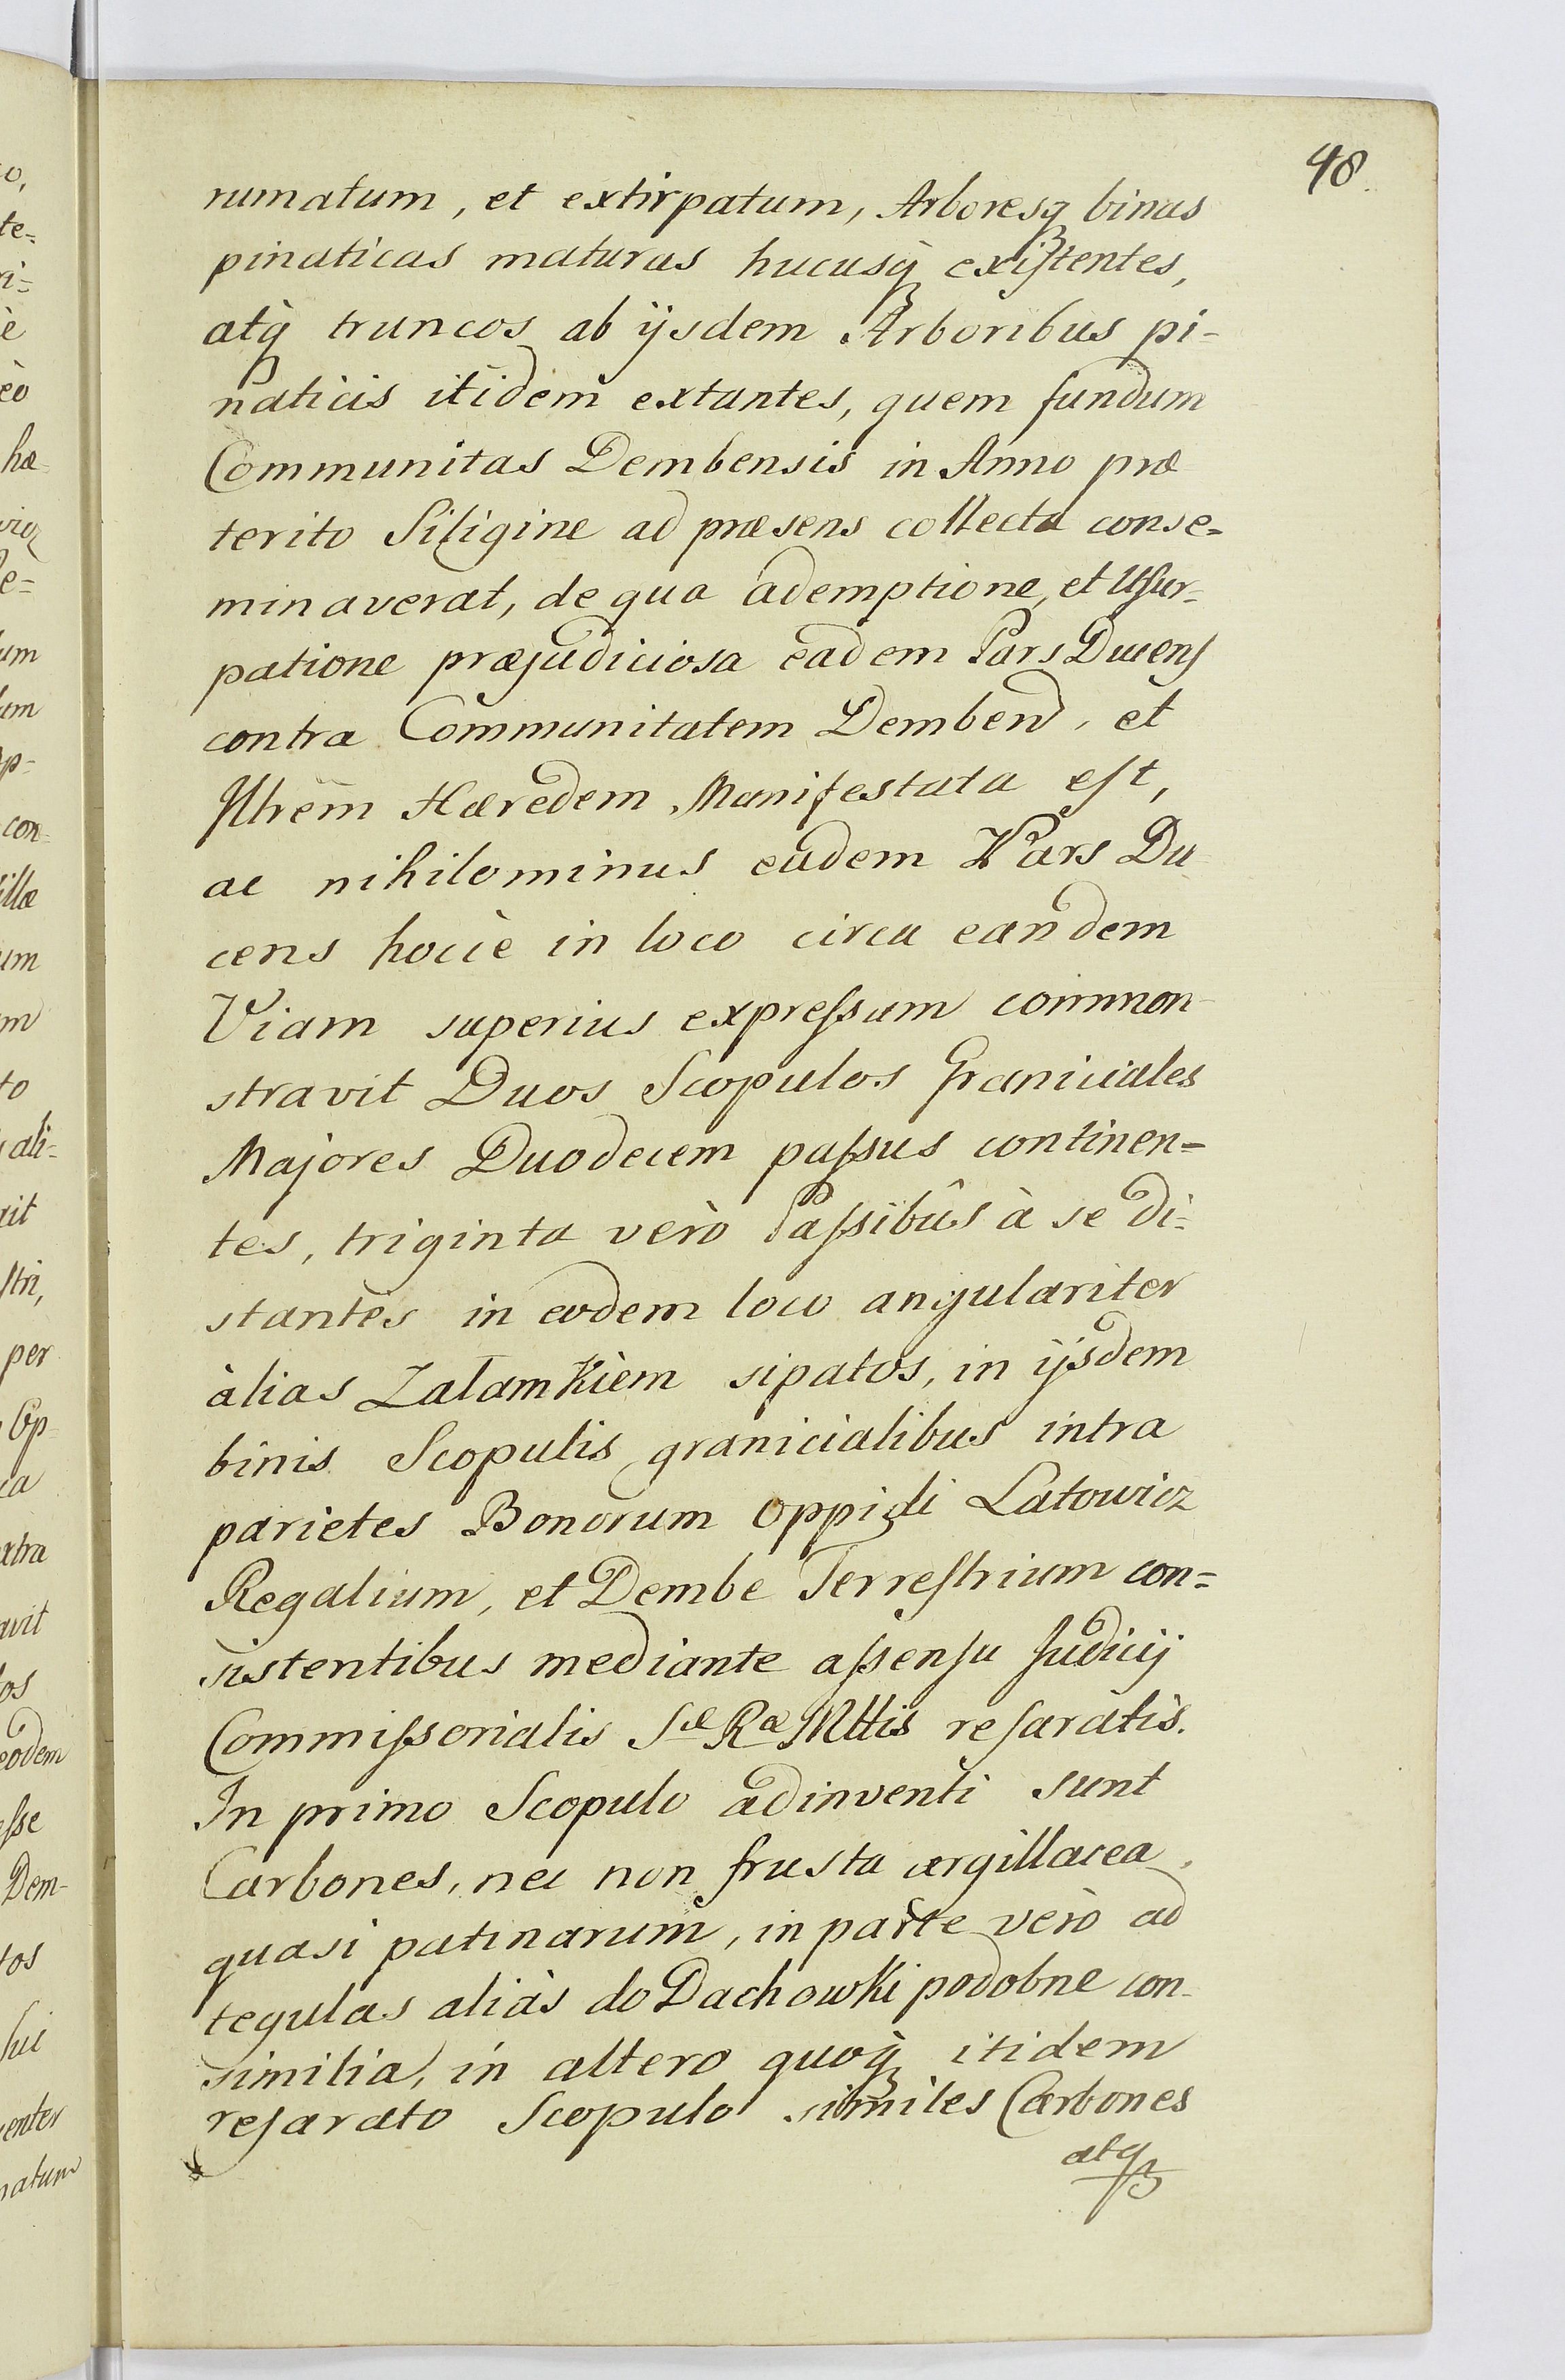 48
rumatum, et extirpatum, Arboresq́ binas
pinaticas maturas hucusq́ existentes,
atq́ truncos ab ijsdem Arboribus pi-
naticis itidem extantes, quem fundum
Communitas Dembensis in Anno præ
terito Siligine ad præsens collecta conse=
minaverat, de qua ademptione, et Usur-
patione præjudiciosa eadem Pars Ducens
contra Communitatem Demben, et
Illrem Hæredem Manifestata est,
ac nihilominus eadem Pars Du
cens hocce in loco circa eandem
Viam superius expressam common
stravit Duos Scopulos Graniciales
Majores Duodecem passus continen=
tes, triginta verò Passibûs à se di-
stantes in eodem loco angulariter
àlias Załamkièm sipatos, in ijsdem
binis Scopulis granicialibus intra
parietes Bonorum Oppidi Latowicz
Regalium, et Dembe Terrestrium con=
sistentibus mediante assensu Judicij
Commissorialis Sæ Ræ Mttis resaratis.
In primo Scopulo adinventi sunt
Carbones, nec non frusta argillacea
quasi patinarum, in parte verò ad
tegulas aliàs do Dachowki podobne con-
similia, in altero quoq́ itidem
resarato Scopulo similes Carbones
atq́